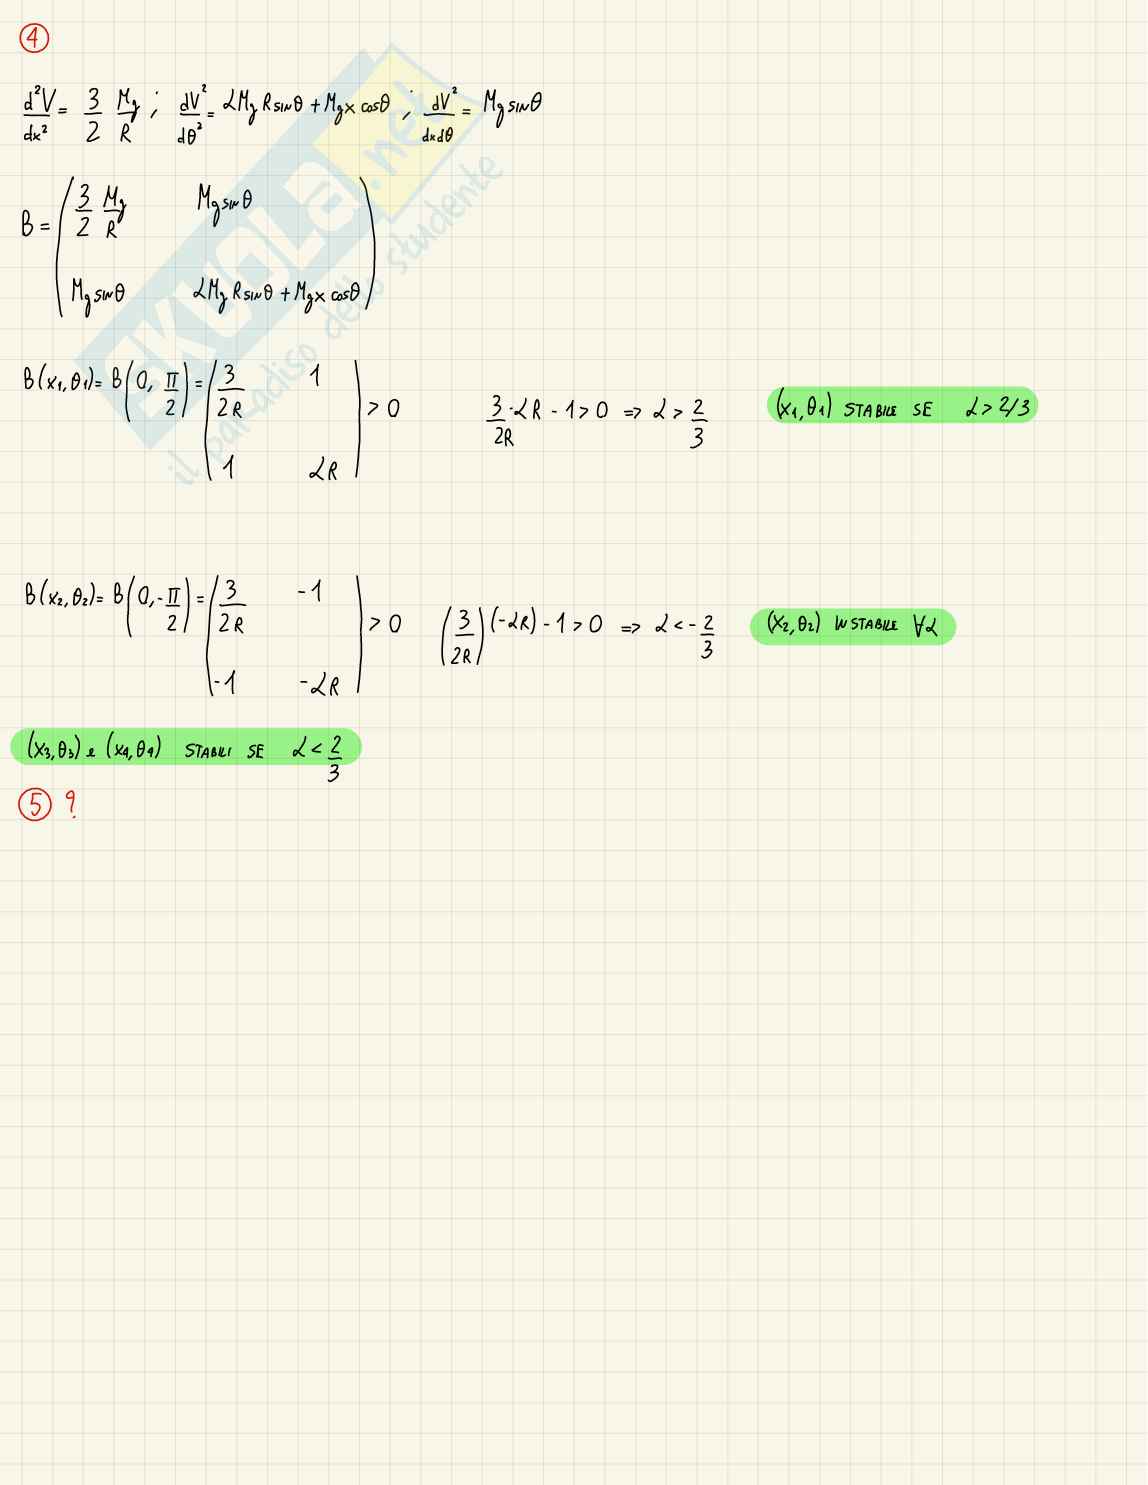 ④
d²V/dx² = 3/2 Mg/R ; dV²/dθ² = αMgR sinθ + Mgx cosθ ; dV²/dxdθ = Mg sinθ
B = ( 3/2 Mg/R   Mg sinθ
Mg sinθ   αMgR sinθ + Mgx cosθ )
B(x₁,θ₁) = B(0, π/2) = | 3/2R   1
1   αR | > 0   3/2R · αR - 1 > 0 => α > 2/3   (x₁,θ₁) STABILE SE α > 2/3
B(x₂,θ₂) = B(0, -π/2) = | 3/2R   -1
-1   -αR | > 0   (3/2R)(-αR) - 1 > 0 => α < -2/3   (x₂,θ₂) INSTABILE ∀α
(x₃,θ₃) e (x₄,θ₄) STABILI SE α < 2/3
⑤ ?
SKUOLA.net
il paradiso dello studente